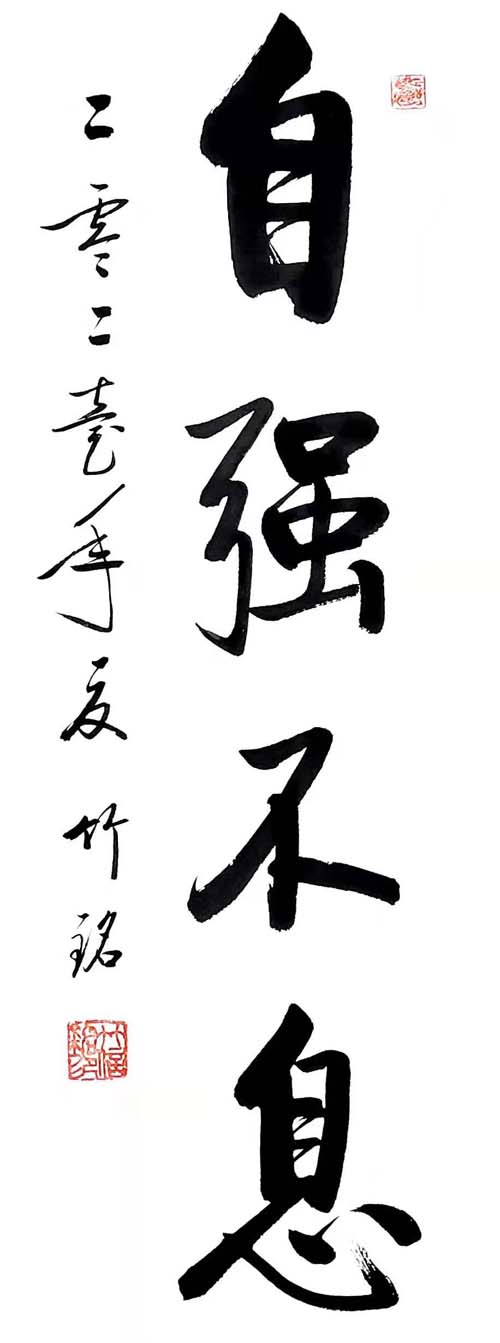 自强不息
二零二壹年夏 竹铭